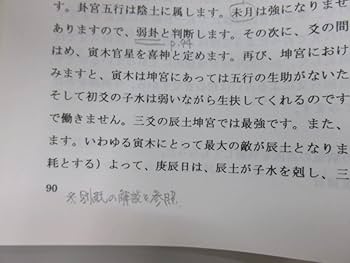 す。卦宮五行は陰土に属します。未月は強になりませ
ありますので、弱卦と判断します。その次に、爻の間
p.94
はめ、寅木官星を喜神と定めます。再び、坤宮におけ
みますと、寅木は坤宮にあっては五行の生助がないた
そして初爻の子水は弱いながら生扶してくれるのです
で働きません。三爻の辰土坤宮では最強です。また、
ます。いわゆる寅木にとって最大の敵が辰土となりま
耗とする）よって、庚辰日は、辰土が子水を剋し、三
90
※別紙の解説を参照